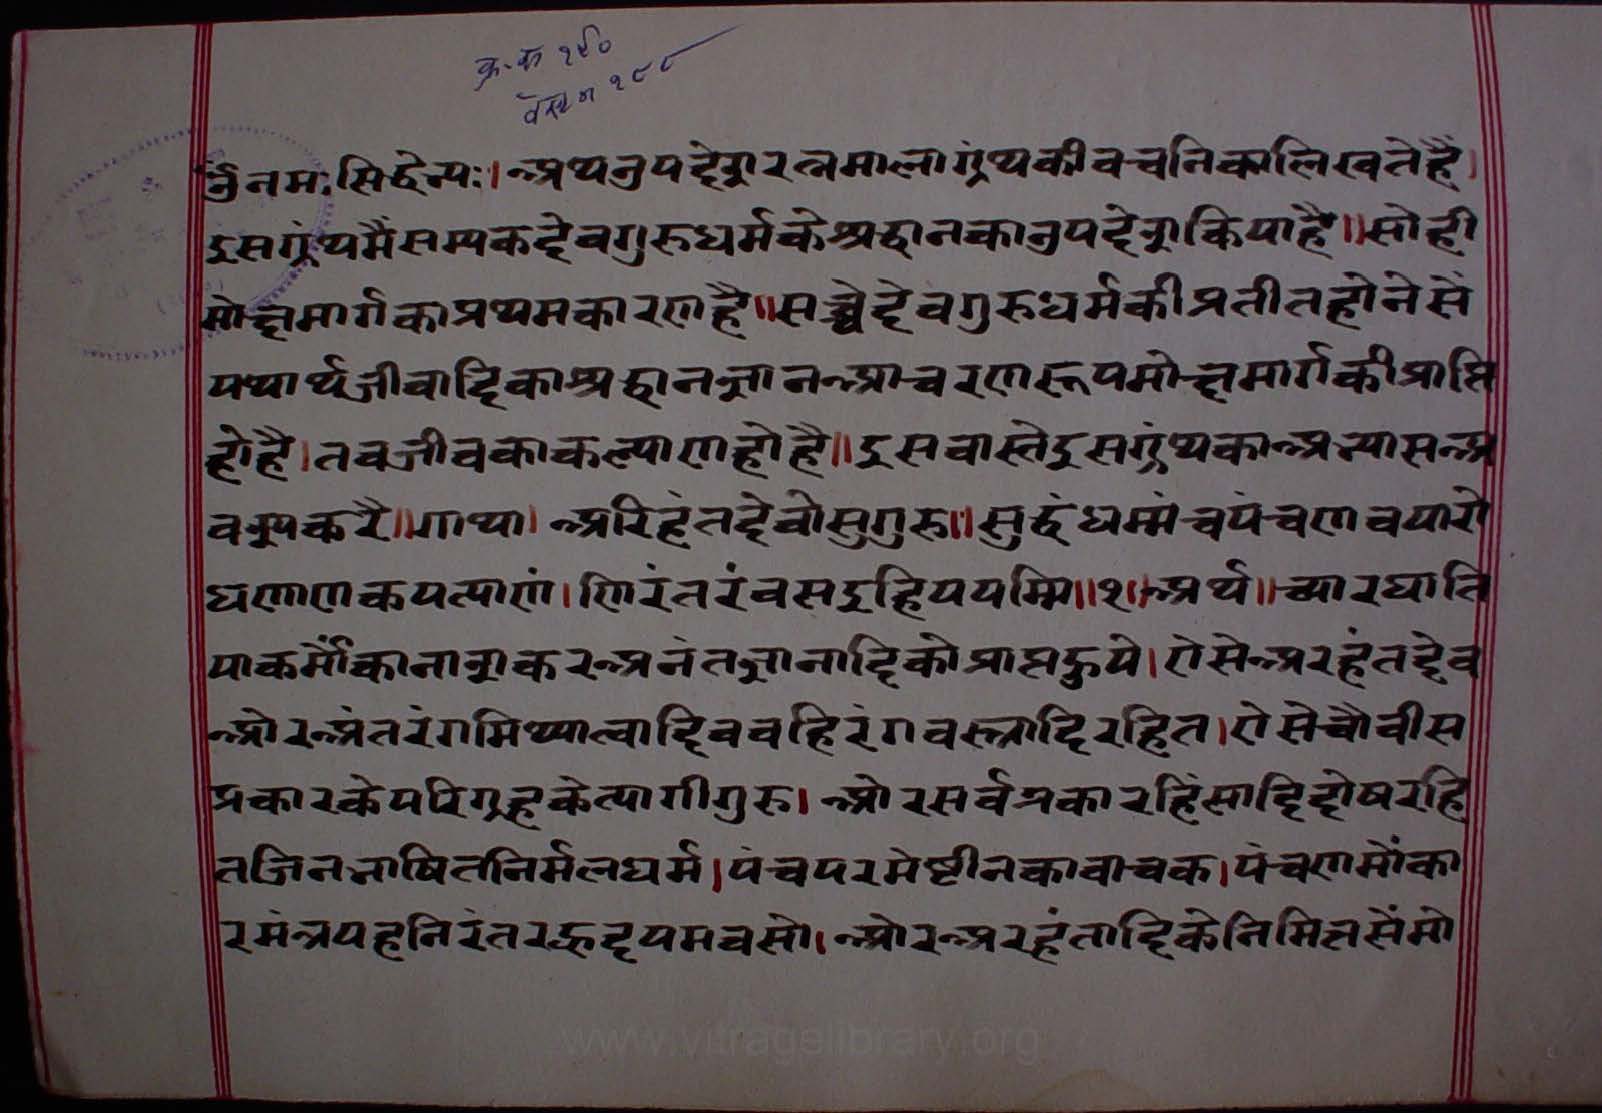 क्र. क १५०
वेस्टन १८८
ॐनमःसिद्धेभ्यः।अथउपदेशरत्नमालाग्रंथकीवचनिकालिखतेहैं।
इसग्रंथमैंसम्यकदेवगुरुधर्मकेश्रद्धानकाउपदेशकियाहै॥सोही
मोक्षमार्गकाप्रथमकारणहै॥सच्चेदेवगुरुधर्मकीप्रतीतहोनेसें
यथार्थजीवादिकाश्रद्धानज्ञानआचरणरूपमोक्षमार्गकीप्राप्ति
होहै।तबजीवकाकल्याणहोहै॥इसवास्तेइसग्रंथकाअभ्यासअ
वश्यकरै॥गाथा।अरिहंतदेवोसुगुरु॥सुद्धंधम्मंचपंचणवयारो
धणाणकयत्याणं।णिरंतरंवसइहिययम्मि॥१॥अर्थ॥च्यारघाति
याकर्मौंकानाशकरअनंतज्ञानादिकोप्राप्तहुये।ऐसेअरहंतदेव
ओरअंतरंगमिथ्यात्वादिवबहिरंगवस्त्रादिरहित।ऐसेचौवीस
प्रकारकेपरिग्रहकेत्यागीगुरु।ओरसर्वप्रकारहिंसादिदोषरहि
तजिनभाषितनिर्मलधर्म।पंचपरमेष्टीनकावाचक।पंचणमोंका
रमंत्रयहनिरंतरहृदयमबसो।ओरअरहंतादिकेनिमित्तसैंमो
www.vitragelibrary.org